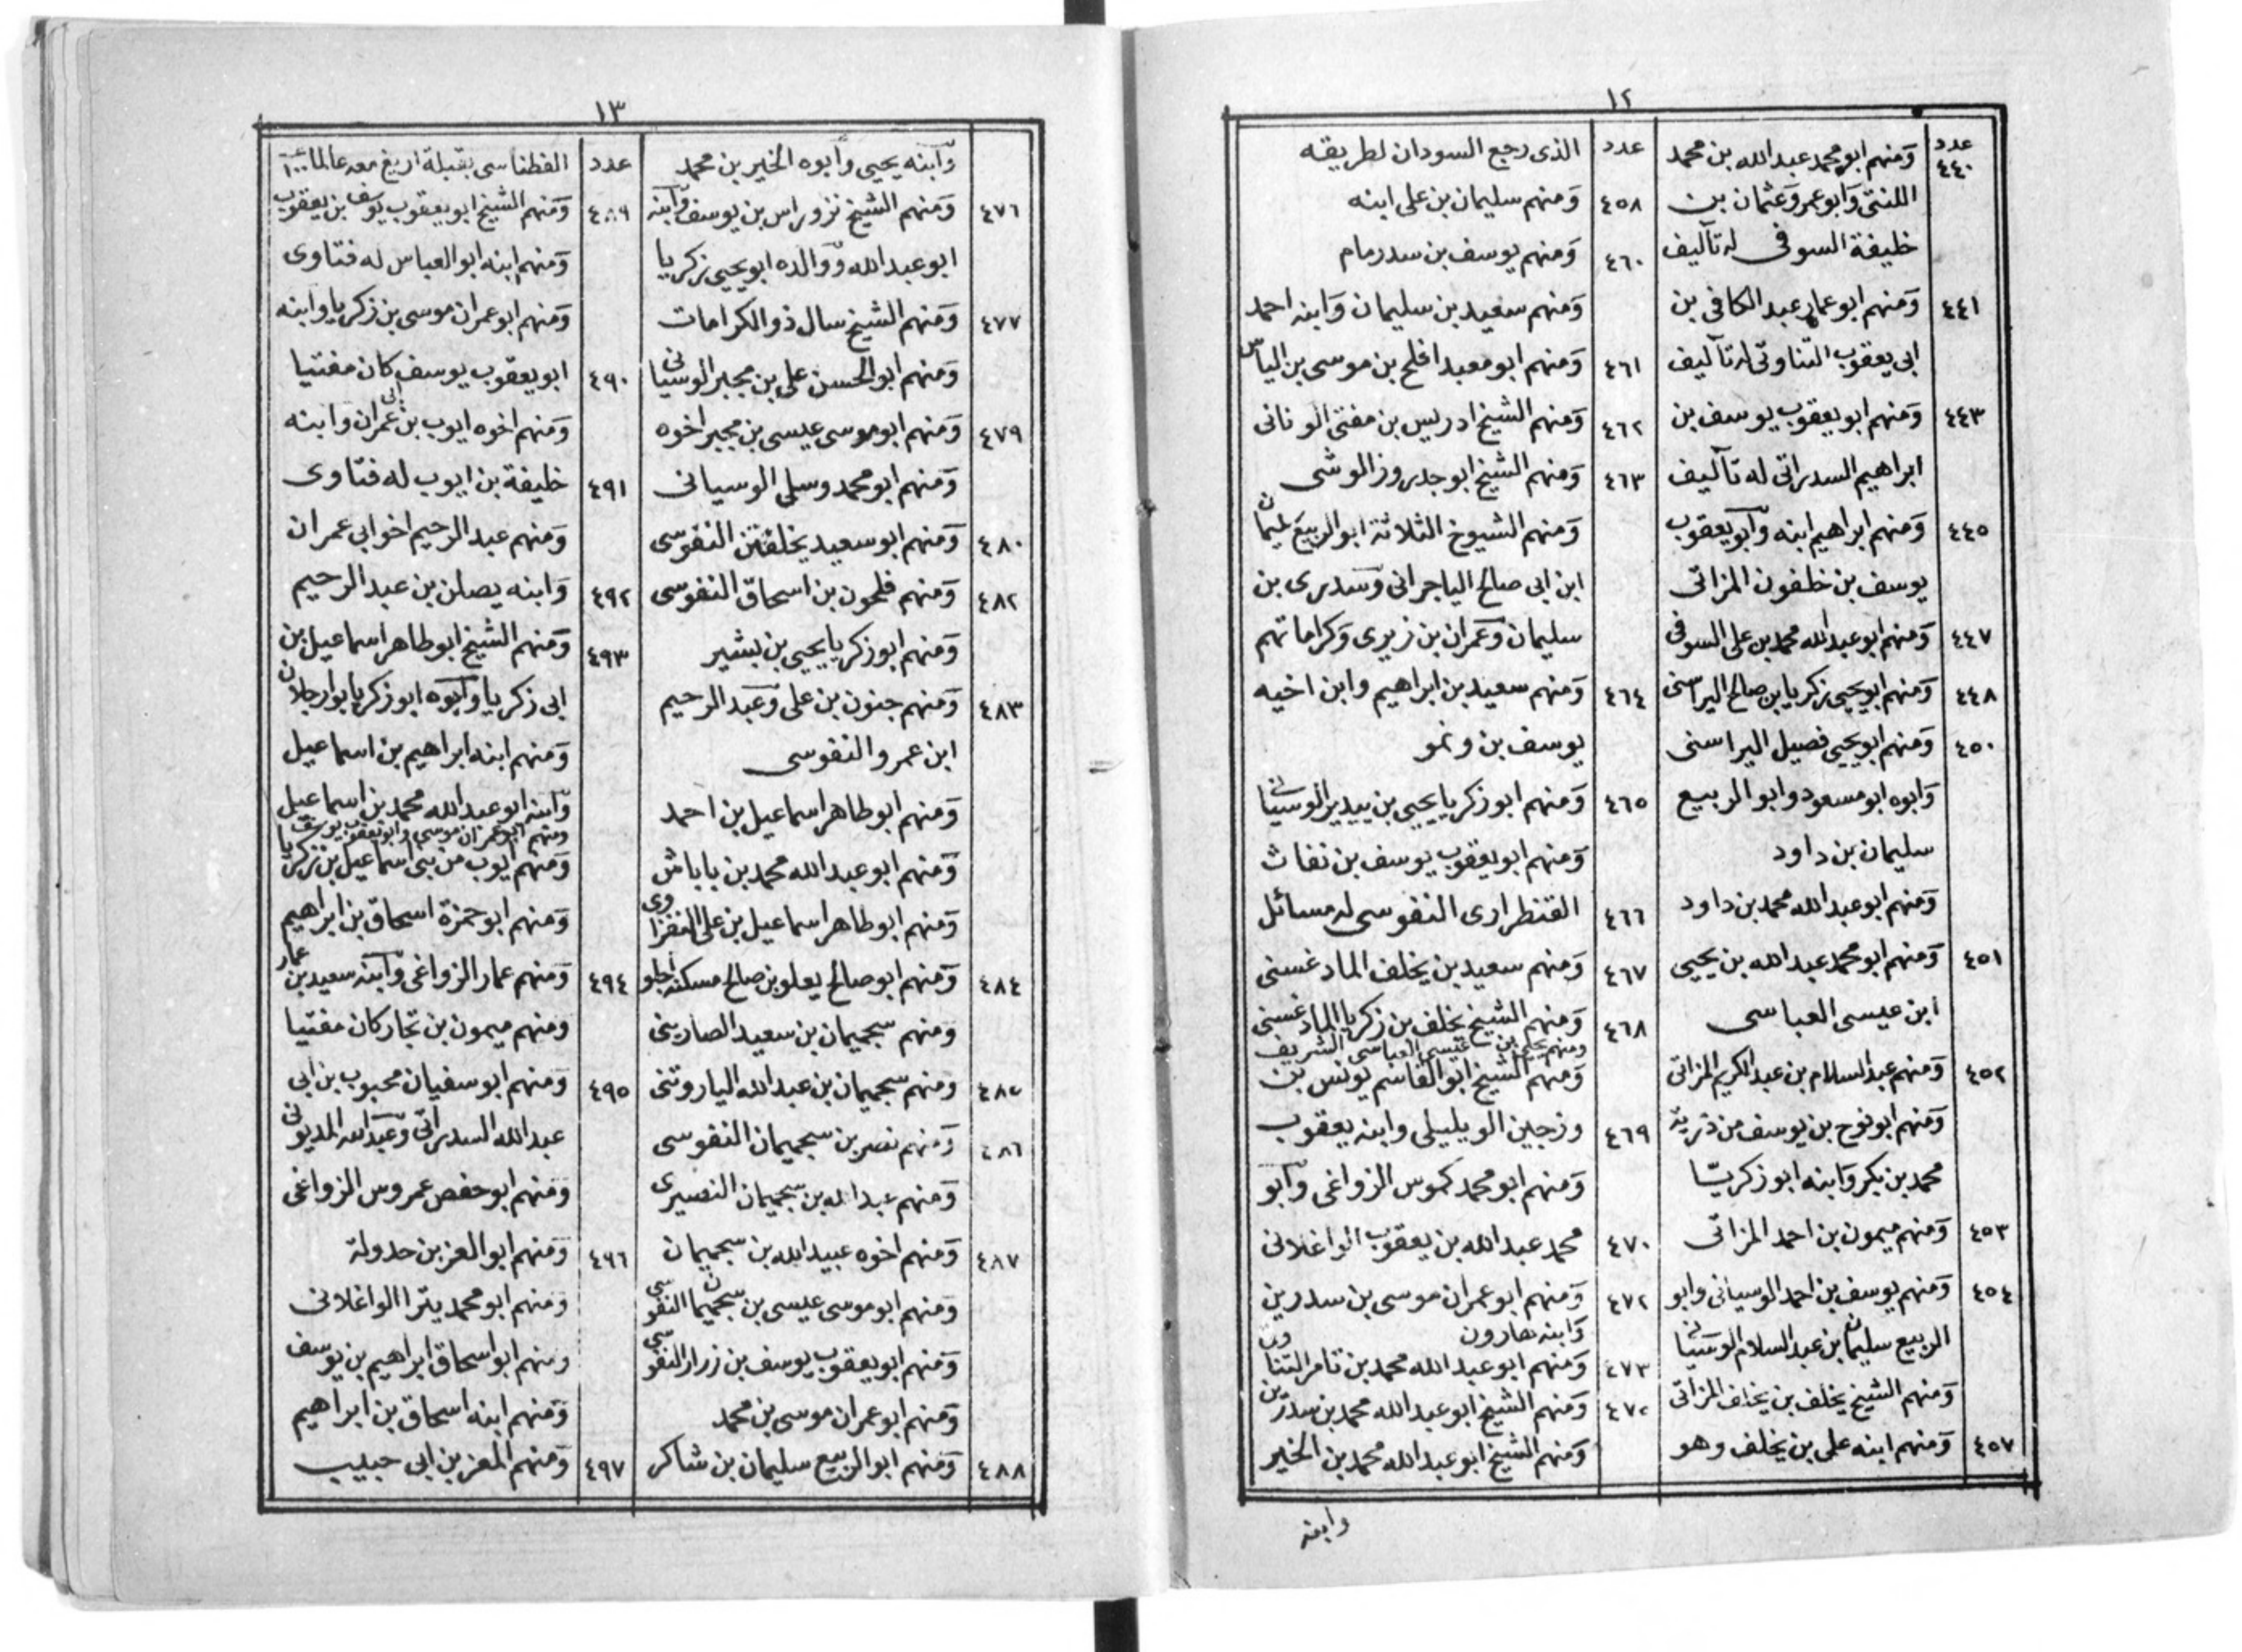 ١٢
عدد ومنهم ابو محمد عبد الله بن محمد
٤٤٠
اللنتى وابو عمرو عثمان بن
خليفة السوفى له تآليف
٤٤١ ومنهم ابو عمار عبد الكافى بن
ابى يعقوب التناوتى له تآليف
٤٤٣ ومنهم ابو يعقوب يوسف بن
ابراهيم السدراتى له تآليف
٤٤٥ ومنهم ابراهيم ابنه وابو يعقوب
يوسف بن خلفون المزاتى
٤٤٧ ومنهم ابو عبد الله محمد بن على السوفى
٤٤٨ ومنهم ابو يحيى زكريا بن صالح اليراسنى
٤٥٠ ومنهم ابو يحيى فصيل اليراسنى
وابوه ابو مسعود وابو الربيع
سليمان بن داود
ومنهم ابو عبد الله محمد بن داود
٤٥١ ومنهم ابو محمد عبد الله بن يحيى
ابن عيسى العباسى
٤٥٢ ومنهم عبد السلام بن عبد الكريم المزاتى
ومنهم ابو نوح بن يوسف من ذرية
محمد بن بكر وابنه ابو زكريا
٤٥٣ ومنهم ميمون بن احمد المزاتى
٤٥٤ ومنهم يوسف بن احمد الوسيانى وابو
الربيع سليمان بن عبد السلام الوسيانى
ومنهم الشيخ يخلف بن يخلف المزاتى
٤٥٧ ومنهم ابنه على بن يخلف وهو
عدد الذى رجع السودان لطريقه
٤٥٨ ومنهم سليمان بن على ابنه
٤٦٠ ومنهم يوسف بن سدرمام
ومنهم سعيد بن سليمان وابنه احمد
٤٦١ ومنهم ابو معبد افلح بن موسى بن الياس
٤٦٢ ومنهم الشيخ ادريس بن مفتى الونانى
٤٦٣ ومنهم الشيخ ابو جدروز الوشى
ومنهم الشيوخ الثلاثة ابو الربيع سليمان
ابن ابى صالح الياجرانى وسدرى بن
سليمان وعمران بن زيرى وكراماتهم
٤٦٤ ومنهم سعيد بن ابراهيم وابن اخيه
يوسف بن ونمو
٤٦٥ ومنهم ابو زكريا يحيى بن بيدير الوسيانى
ومنهم ابو يعقوب يوسف بن نفاث
٤٦٦ القنطرارى النفوسى له مسائل
٤٦٧ ومنهم سعيد بن يخلف المادغسنى
٤٦٨ ومنهم الشيخ يخلف بن زكريا المادغسنى
ومنهم يحيى بن عيسى العباسى الشريف
ومنهم الشيخ ابو القاسم يونس بن
٤٦٩ وزجين الويليلى وابنه يعقوب
ومنهم ابو محمد كموس الزواغى وابو
٤٧٠ محمد عبد الله بن يعقوب الواغلانى
٤٧٢ ومنهم ابو عمران موسى بن سدرين
وابنه هارون
٤٧٣ ومنهم ابو عبد الله محمد بن تامر التناوتى
٤٧٢ ومنهم الشيخ ابو عبد الله محمد بن سدرين
ومنهم الشيخ ابو عبد الله محمد بن الخير
وابنه
١٣
وابنه يحيى وابوه الخير بن محمد
٤٧٦ ومنهم الشيخ نزوراس بن يوسف وابنه
ابو عبد الله ووالده ابو يحيى زكريا
٤٧٧ ومنهم الشيخ سال ذو الكرامات
ومنهم ابو الحسن على بن مجبر الوسيانى
٤٧٩ ومنهم ابو موسى عيسى بن مجبر اخوه
ومنهم ابو محمد وسلى الوسيانى
٤٨٠ ومنهم ابو سعيد يخلفتن النفوسى
٤٨٢ ومنهم فلحون بن اسحاق النفوسى
ومنهم ابو زكريا يحيى بن بشير
٤٨٣ ومنهم جنون بن على وعبد الرحيم
ابن عمرو النفوسى
ومنهم ابو طاهر اسماعيل بن احمد
ومنهم ابو عبد الله محمد بن باباش
ومنهم ابو طاهر اسماعيل بن على النفزاوى
٤٨٤ ومنهم ابو صالح يعلو بن صالح مسكنه اجلو
ومنهم سجميمان بن سعيد الصارينى
٤٨٥ ومنهم سجميمان بن عبد الله الياروتنى
٤٨٦ ومنهم نصر بن سجميمان النفوسى
ومنهم عبد الله بن سجميمان النصيرى
٤٨٧ ومنهم اخوه عبيد الله بن سجميمان
ومنهم ابو موسى عيسى بن سجميمان النفوسى
ومنهم ابو يعقوب يوسف بن زرار النفوسى
ومنهم ابو عمران موسى بن محمد
٤٨٨ ومنهم ابو الربيع سليمان بن شاكر
عدد الفطناسى بقبلة اريغ معه عالما ١٠٠
٤٨٩ ومنهم الشيخ ابو يعقوب يوسف بن يعقوب
ومنهم ابنه ابو العباس له فتاوى
ومنهم ابو عمران موسى بن زكريا وابنه
٤٩٠ ابو يعقوب يوسف كان مفتيا
ومنهم اخوه ايوب بن ابى عمران وابنه
٤٩١ خليفة بن ايوب له فتاوى
ومنهم عبد الرحيم اخو ابى عمران
٤٩٢ وابنه يصلن بن عبد الرحيم
٤٩٣ ومنهم الشيخ ابو طاهر اسماعيل بن
ابى زكريا وابوه ابو زكريا بوارجلان
ومنهم ابنه ابراهيم بن اسماعيل
وابنه ابو عبد الله محمد بن اسماعيل
ومنهم ابو عمران موسى وابو يعقوب يوسف
ومنهم ايوب من بنى اسماعيل بن زكريا
ومنهم ابو حمزة اسحاق بن ابراهيم
٤٩٤ ومنهم عمار الزواغى وابنه سعيد بن عمار
ومنهم ميمون بن تجار كان مفتيا
٤٩٥ ومنهم ابو سفيان محبوب بن ابى
عبد الله السدراتى وعبد الله المديونى
ومنهم ابو حفص عمروس الزواغى
٤٩٦ ومنهم ابو العز بن حدولة
ومنهم ابو محمد يترا الواغلانى
ومنهم ابو اسحاق ابراهيم بن يوسف
ومنهم ابنه اسحاق بن ابراهيم
٤٩٧ ومنهم المعز بن ابى حبيب